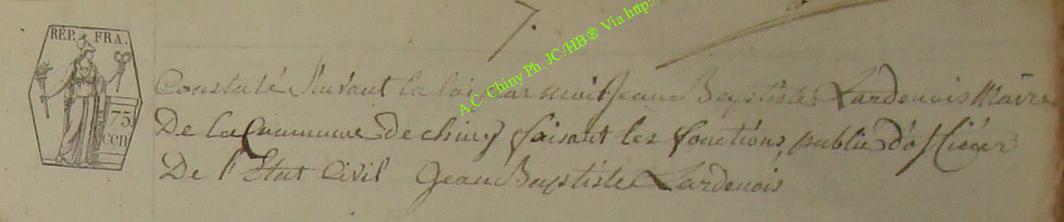 7.
RÉP. FRA.
75
cen
A.C. Chiny Ph. JC /HB ® Via http:/
Constaté Suivant la loi par moi Jean Baptiste Lardenois Maire
De la Commune de chiny faisant les fonctions public d'oficier
De l'Etat Civil Jean Baptiste Lardenois